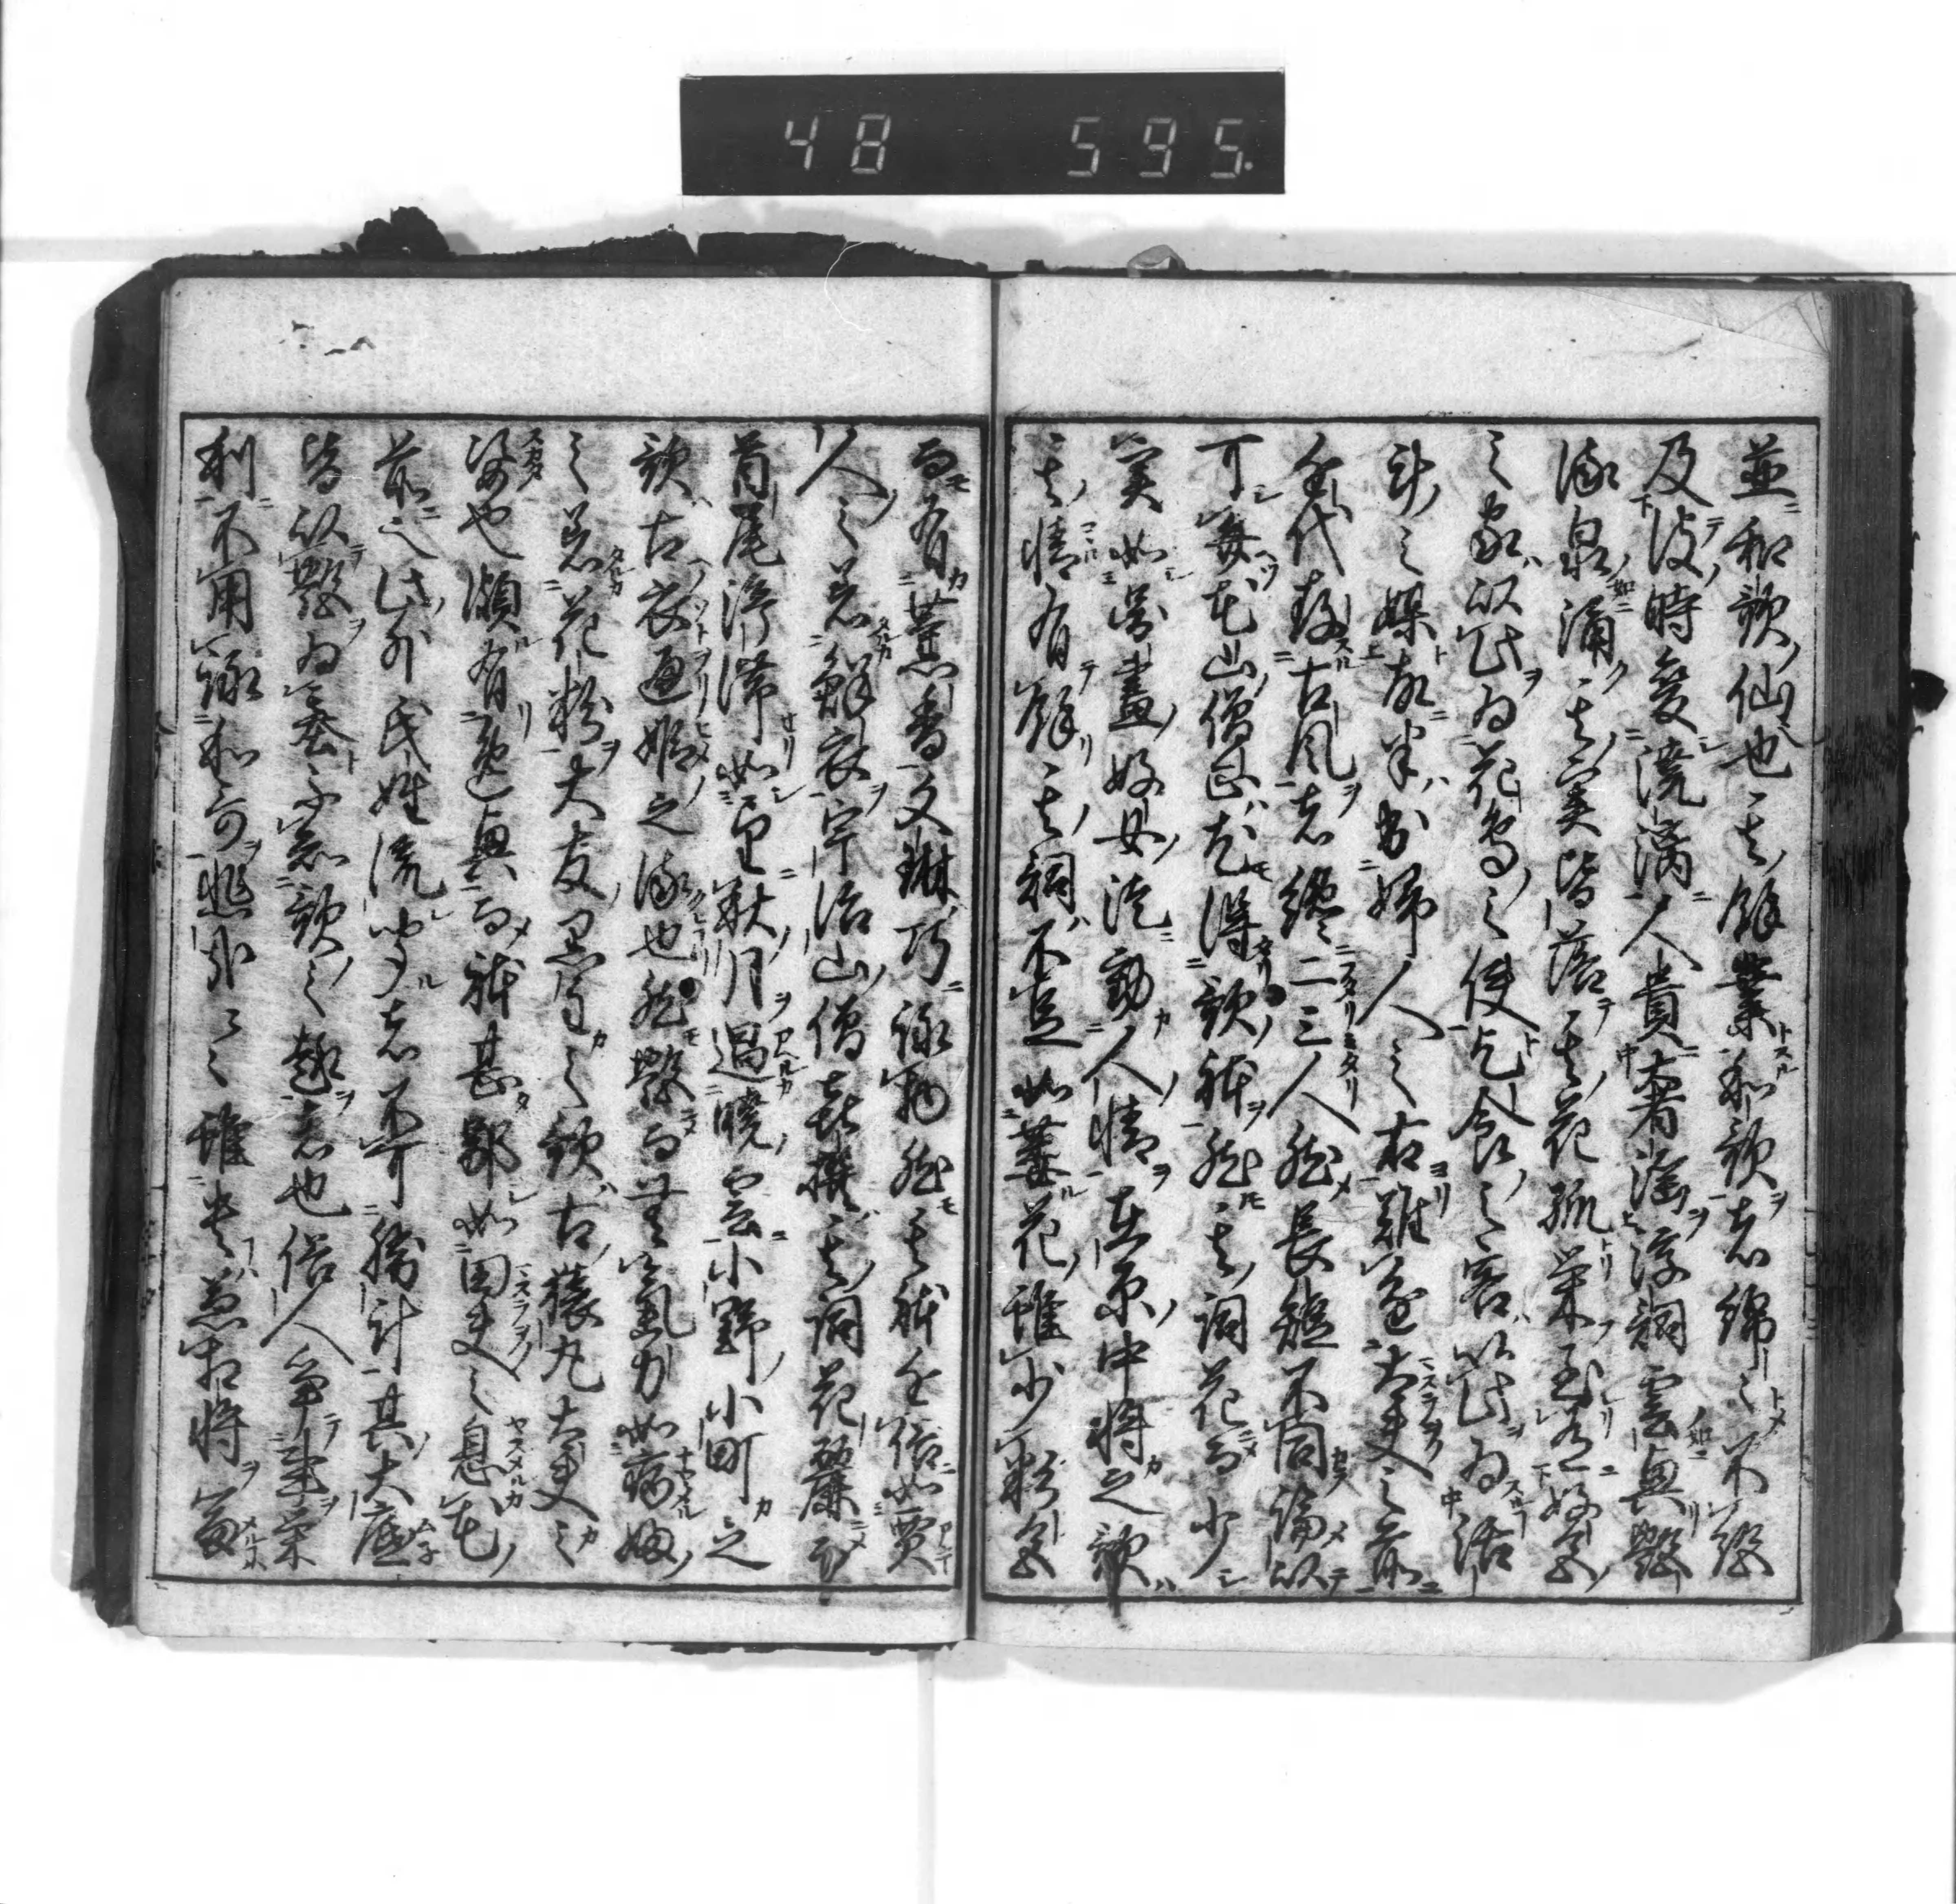 並和歌仙也其餘業和歌者綿々不絶
及彼時変澆漓人貴奢淫浮詞雲興艶
流泉涌其実皆落其花孤栄至有好色
之家以此為花鳥之使乞食之客以此為活
計之媒故半為婦人之右難進大夫之前
近代存古風者纔二三人然長短不同論以
可弁花山僧正尤得歌体然其詞花而少
実如図畫好女徒動人情在原中将之歌
其情有餘其詞不足如萎花雖少彩色
而有薫香文琳巧詠物然其体近俗如賈
人之着鮮衣宇治山僧喜撰其詞花麗而
首尾停滞如望秋月遇曉雲小野小町之
歌古衣通姫之流也然艶而無氣力如病婦
之着花粉大友黒主之歌古猿丸大夫之
姿也頗有逸興而体甚鄙如田夫之息花
前也此外氏姓流聞者不可勝計其大底
皆以艶為基不知歌之趣者也俗人争事栄
利不用詠和哥悲哉々々雖貴兼相将富
48 595.